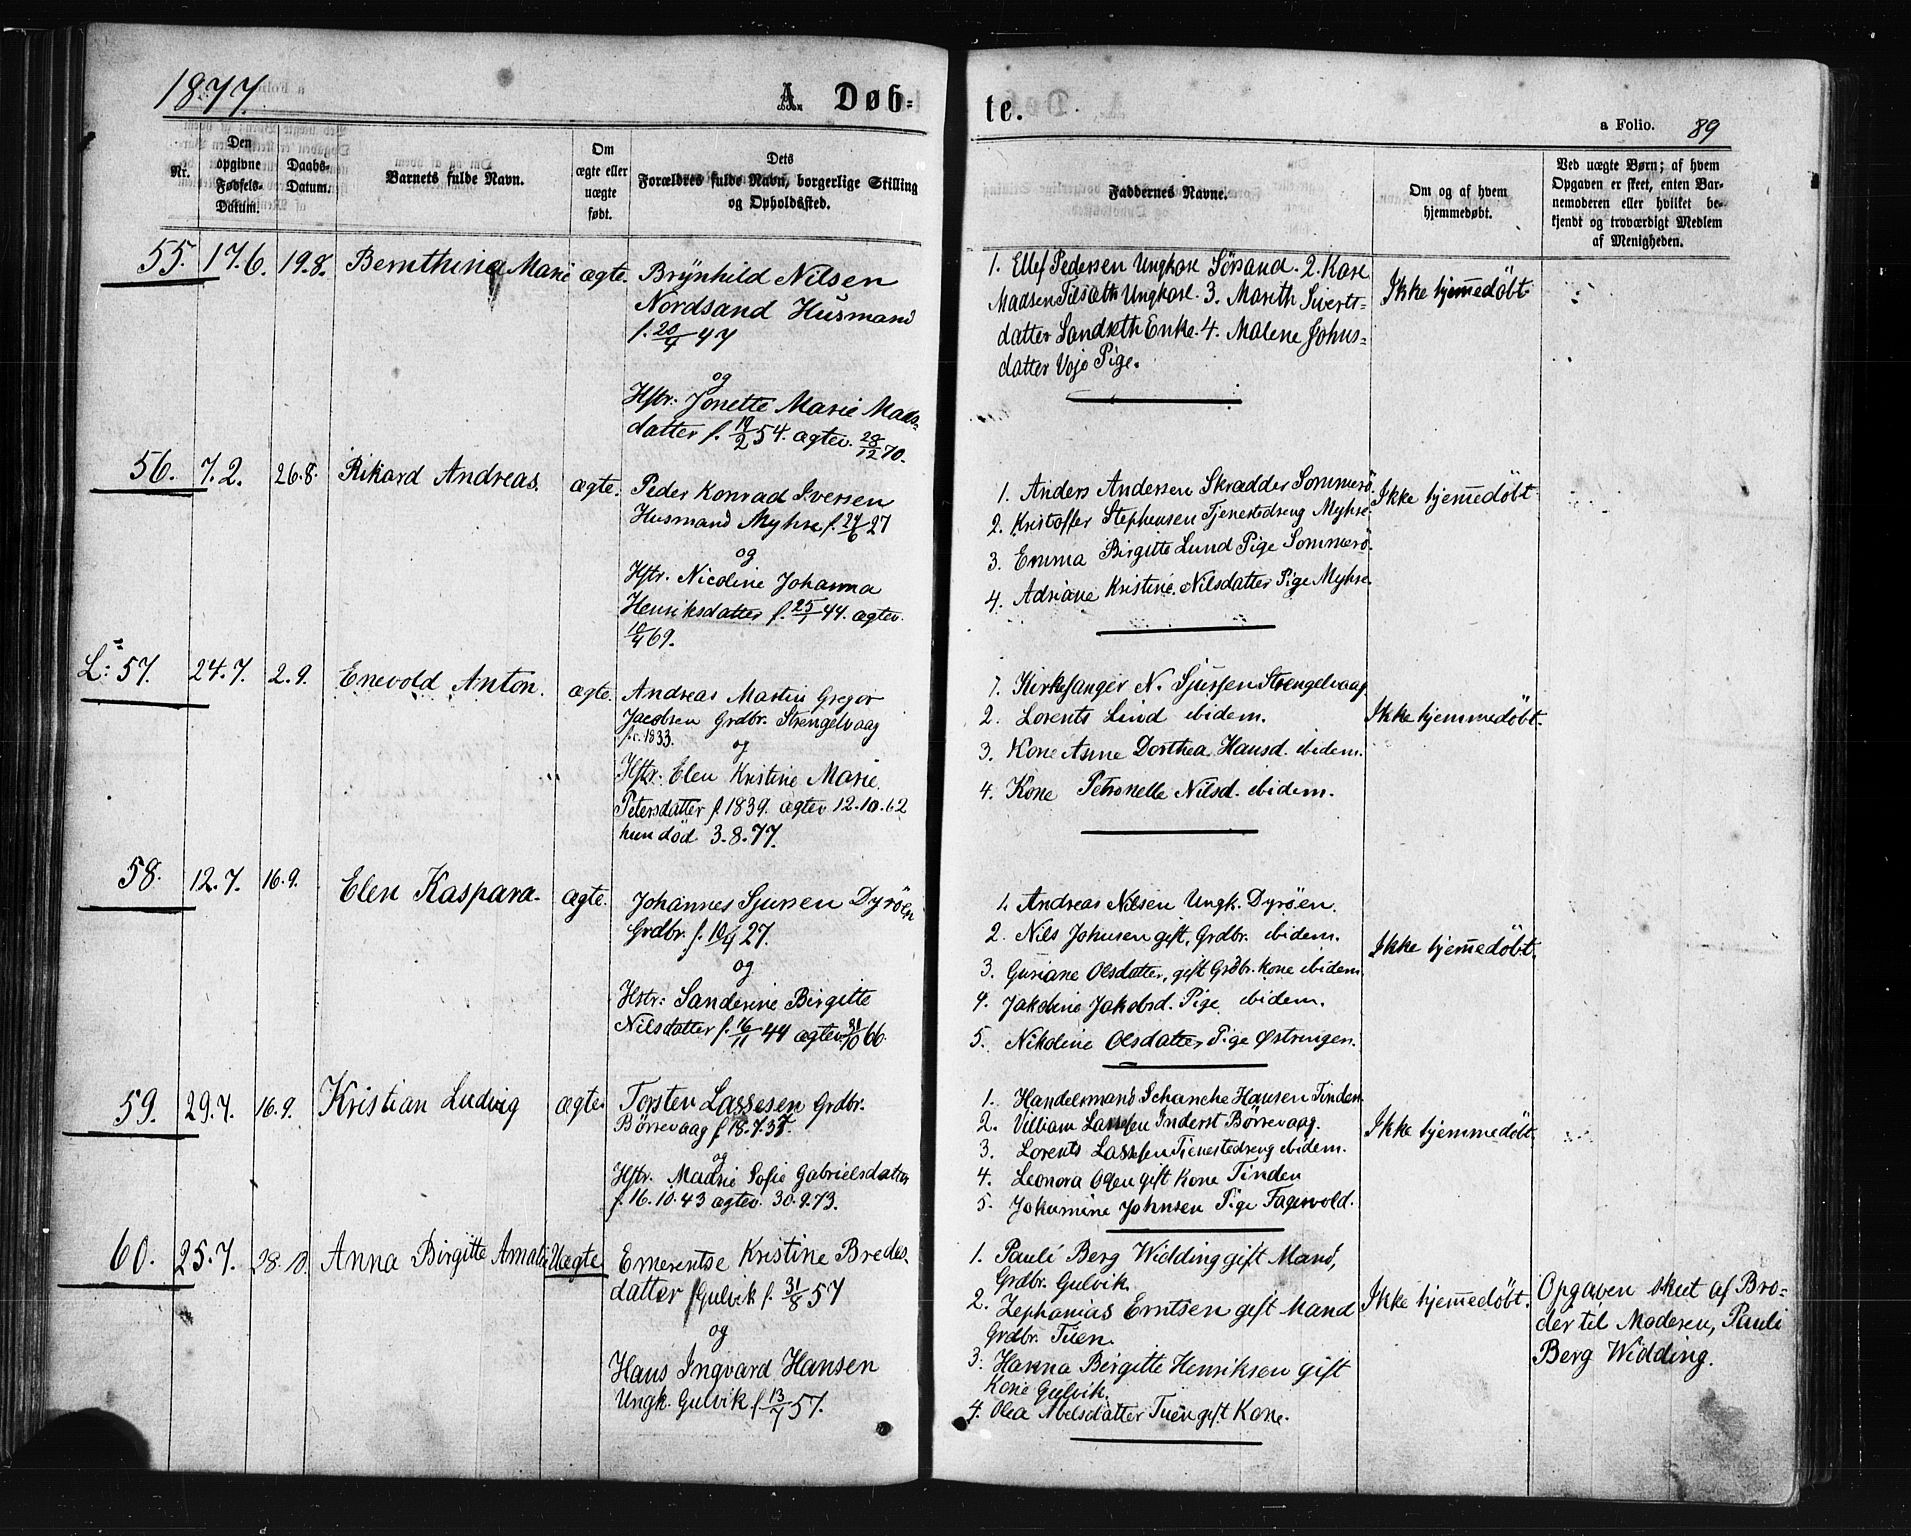 1877.
A. Døb-
te.
a Folio. 89
Nr.
Den
opgivne
Fødsels-
Datum.
Daabs-
Datum.
Barnets fulde Navn.
Om
ægte eller
uægte
født.
Dets
Forældres fulde Navn, borgerlige Stilling
og Opholdssted.
Faddernes Navne.
Om og af hvem
hjemmedøbt.
Ved uægte Børn; af hvem
Opgaven er skeet, enten Bar-
nemoderen eller hvilket be-
kjendt og troværdigt Medlem
af Menigheden.
55. 17.6. 19.8. Bernthina Marie ægte.
Brynhild Nilsen
Nordsand Husmand
f. 20/4 47
og
Hstr: Jonette Marie Mads-
datter f. 19/2 54. ægtev. 28/12 70.
1. Ellef Pedersen Ungkarl Sørsand. 2. Karl
Madsen Tilsæth Ungkarl. 3. Marith Siverts-
datter Sandsæth Enke. 4. Malene Johns-
datter Vojo Pige.
Ikke hjemmedøbt
56. 7.2. 26.8. Rikard Andreas. ægte.
Peder Konrad Iversen
Husmand Myhre f. 24/6 27
og
Hstr. Nicoline Johanna
Henriksdatter f. 25/1 44. ægtev.
10/4 69.
1. Anders Andersen Skrædder Sommerö
2. Kristoffer Stephensen Tjenestedreng Myhre
3. Emma Birgitte Lund Pige Sommerö.
4. Adriane Kristine Nilsdatter Pige Myhre.
Ikke hjemmedøbt
L: 57. 24.7. 2.9. Enevold Anton. ægte.
Andreas Martin Gregor
Jacobsen Grdbr. Strengelvaag
f. c. 1833.
og
Hstr. Elen Kristine Marie
Petersdatter f. 1839. ægtev 12.10.62
hun död 3.8.77.
1. Kirkesanger N. Sjursen Strengelvaag
2. Lorents Lind ibidem.
3. Kone Anne Dorthea Hansd. ibidem.
4. Kone Petronelle Nilsd. ibidem.
Ikke hjemmedøbt.
58. 12.7. 16.9. Elen Kaspara. ægte.
Johannes Sjursen Dyröen
Grdbr. f. 10/9 27.
og
Hstr: Sanderine Birgitte
Nilsdatter f. 16/11 44 ægtev 21/10 66.
1. Andreas Nilsen Ungk. Dyröen.
2. Nils Johnsen gift, Grdbr. ibidem.
3. Guriane Olsdatter, gift Grdbr. Kone ibidem
4. Jakobine Jakobsd. Pige ibidem.
5. Nikoline Olsdatter Pige Østrengen.
Ikke hjemmedøbt.
59. 29.7. 16.9. Kristian Ludvig ægte
Torsten Lassesen Grdbr.
Börrevaag f. 18.7.37.
og
Hstr. Madrie Sofie Gabrielsdatter
f. 16.10.43 ægtev. 30.9.73.
1. Handelsmand Schanche Hansen Tinden
2. Villiam Lassesen Inderst Börrevaag.
3. Lorents Lassesen Tjenestedreng ibidem.
4. Leonora Olsen gift Kone Tinden
5. Johannine Johnsen Pige Fagervold.
Ikke hjemmedøbt.
60. 25.7. 28.10. Anna Birgitte Amalia Uægte
Emerentse Kristine Bredes-
datter Gulvik f. 31/8 57
og
Hans Ingvard Hansen
Ungk. Gulvik f. 13/7 57.
1. Pauli Berg Widding gift Mand,
Grdbr. Gulvik.
2. Zephanias Erntsen gift Mand
Grdbr. Tuen.
3. Hanna Birgitte Henriksen gift
Kone Gulvik.
4. Olea Abelsdatter Tuen gift Kone.
Ikke hjemmedøbt.
Opgaven skeet af Bro-
der til Moderen, Pauli
Berg Widding.